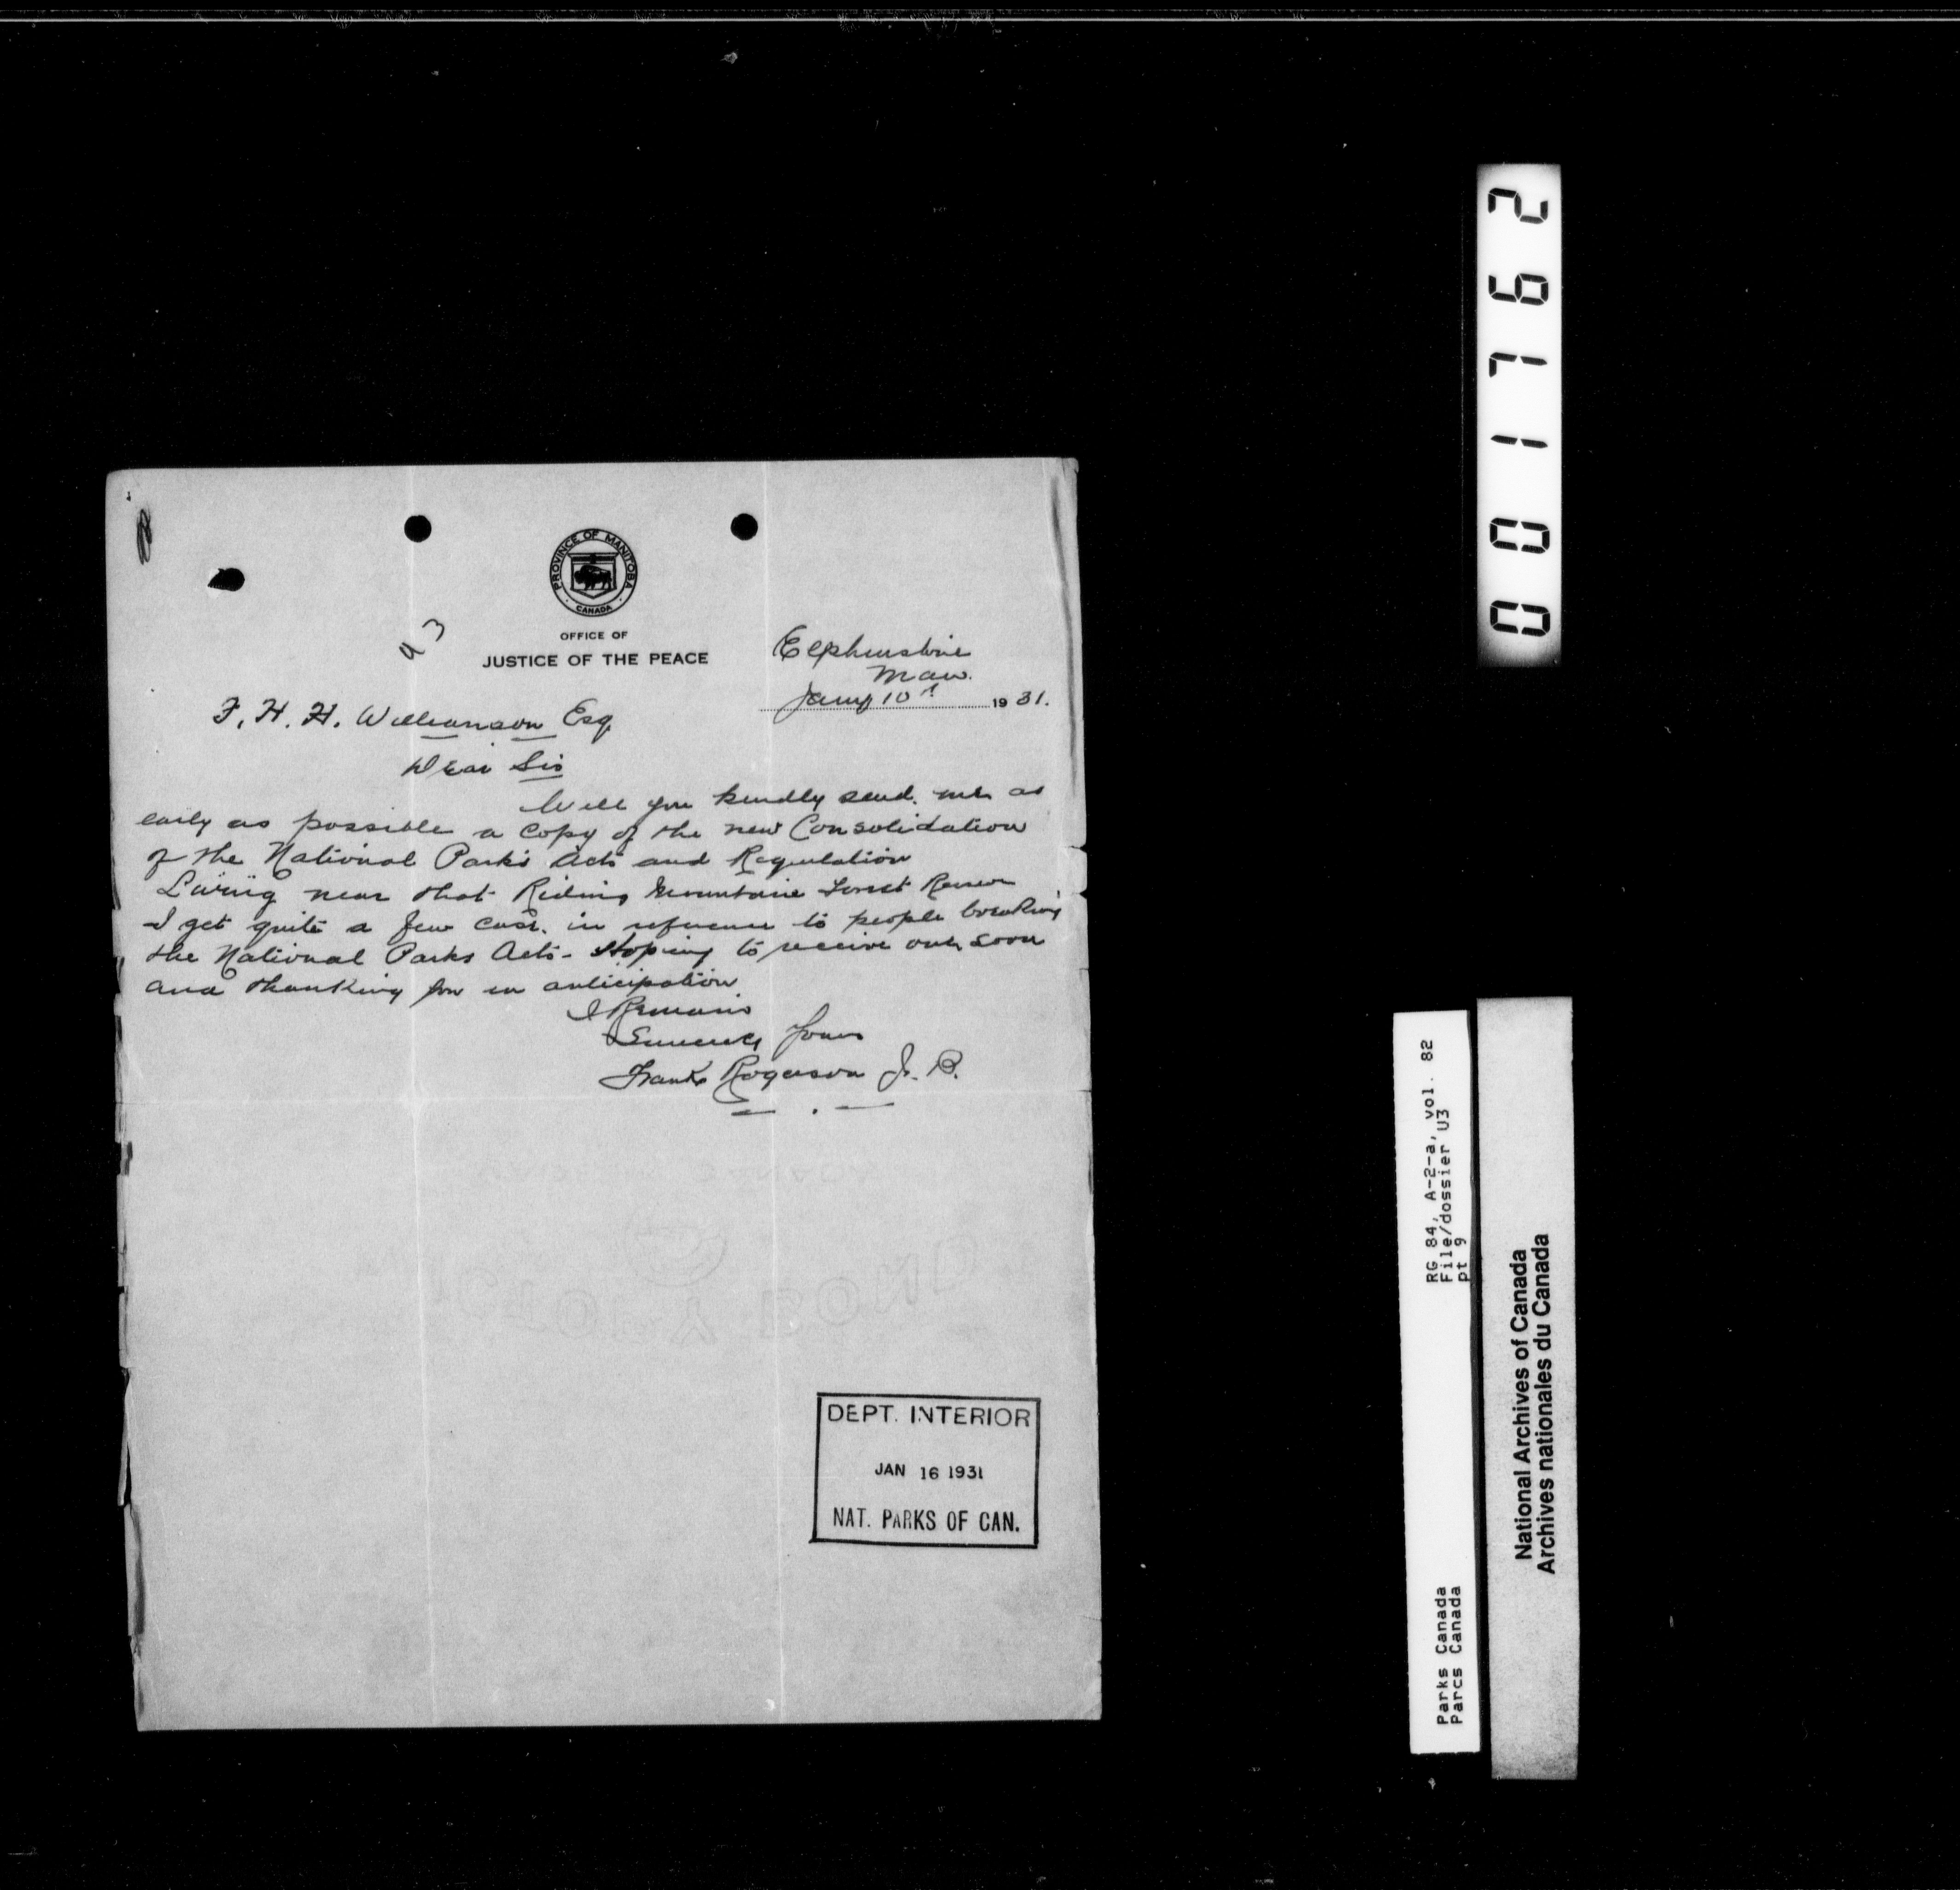 PROVINCE OF MANITOBA
CANADA
OFFICE OF
JUSTICE OF THE PEACE
Elphinstone
Man.
Jany 10th 1931.
F. H. H. Williamson Esq
Dear Sir
Will you kindly send me as
early as possible a copy of the new Consolidation
of the National Parks Acts and Regulation
Living near that Riding Mountain Forest Reserve
I get quite a few case. in reference to people breaking
the National Parks Acts - Hoping to receive one soon
and thanking you in anticipation
I Remain
Sincerely Yours
Frank Rogerson J. P.
DEPT. INTERIOR
JAN 16 1931
NAT. PARKS OF CAN.
001762
RG 84, A-2-a, vol. 82
File/dossier U3
pt 9
Parks Canada
Parcs Canada
National Archives of Canada
Archives nationales du Canada